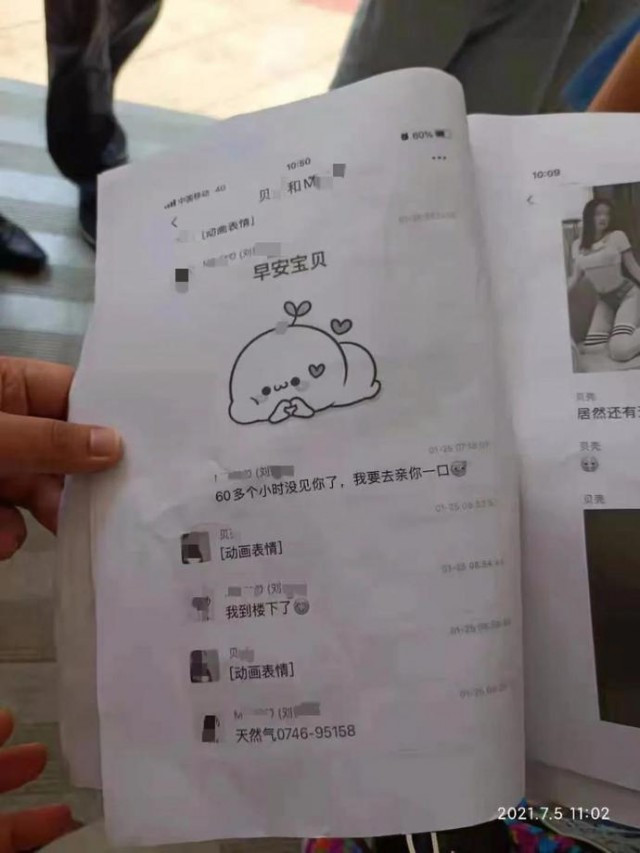 中国移动 4G
10:50
60%
贝
和M
[动画表情]
(刘
早安宝贝
01-25 07:18:59
(刘
60多个小时没见你了，我要去亲你一口
贝
[动画表情]
(刘
我到楼下了
贝
[动画表情]
M
(刘
天然气0746-95158
10:09
贝壳
居然还有
贝壳
贝壳
2021.7.5 11:02